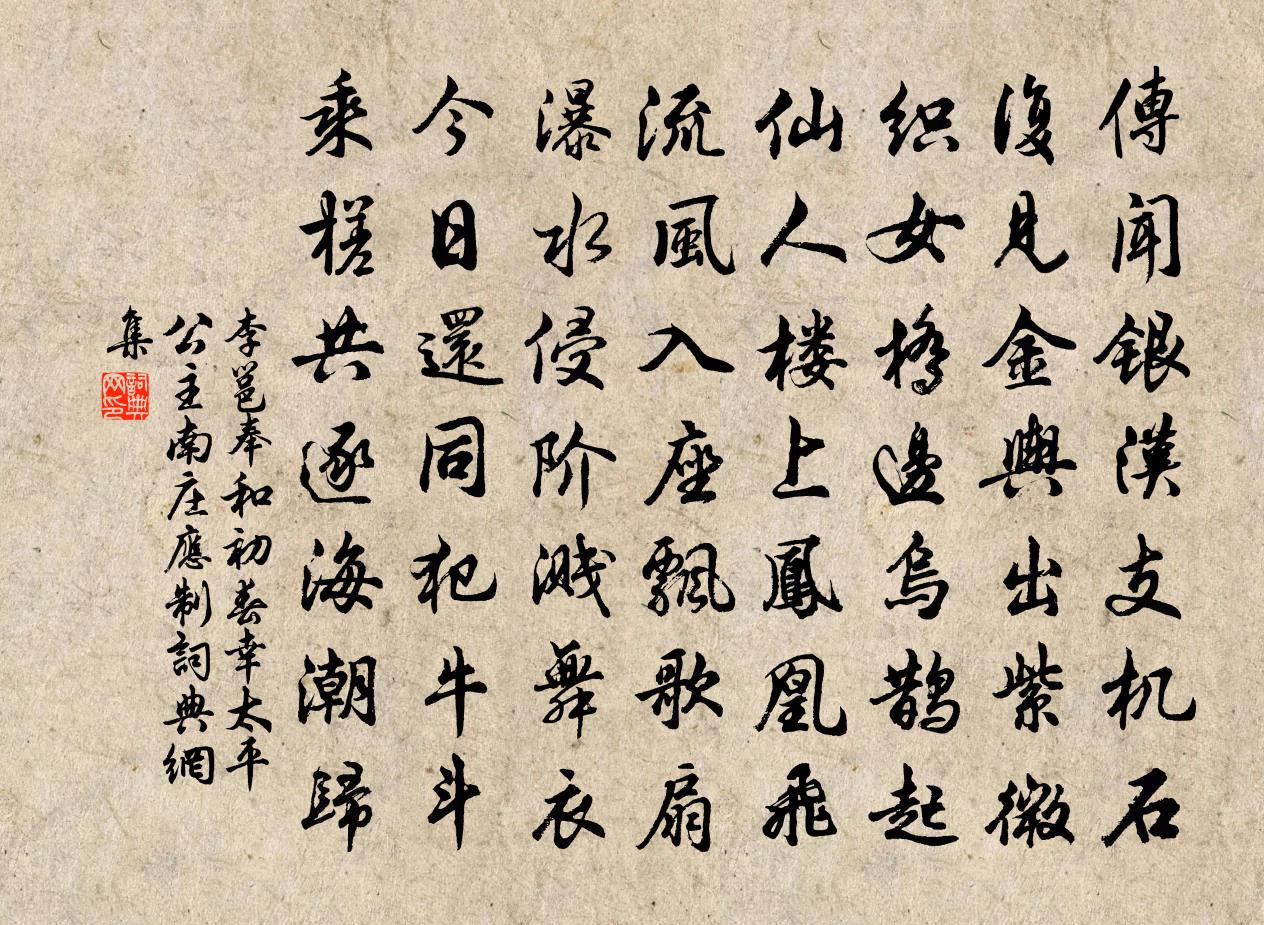 傳闻銀漢支机石
復見金輿出紫微
织女橋邊烏鹊起
仙人楼上鳳凰飛
流風入座飄歌扇
瀑水侵阶濺舞衣
今日還同犯牛斗
乘槎共逐海潮歸
李邕奉和初春幸太平
公主南庄應制詞典網
集
詞典網印